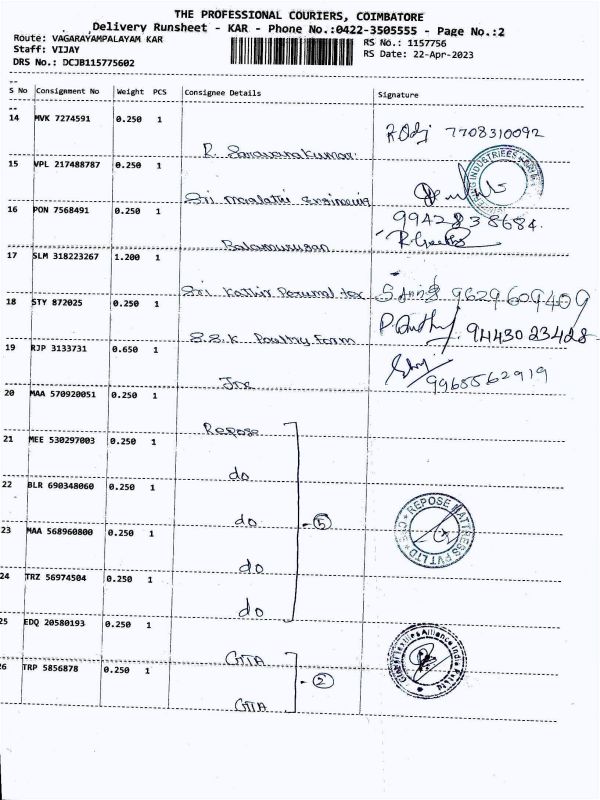 THE PROFESSIONAL COURIERS, COIMBATORE
Delivery Runsheet - KAR - Phone No.:0422-3505555 - Page No.:2
Route: VAGARAYAMPALAYAM KAR
RS No.: 1157756
Staff: VIJAY
RS Date: 22-Apr-2023
DRS No.: DCJB115775602
S No Consignment No Weight PCS Consignee Details Signature
14 MVK 7274591 0.250 1
R. Saravanakumar 7708310092
15 VPL 217488787 0.250 1
Sri maalathi engineering
16 PON 7568491 0.250 1 9942838684
Balamurugan
17 SLM 318223267 1.200 1
Sri Kathir Perumal tex 9629609409
18 STY 872025 0.250 1
S.S.K Poultry Farm 9443023428
19 RJP 3133731 0.650 1
Joe 9965562919
20 MAA 570920051 0.250 1
Repose
21 MEE 530297003 0.250 1
do
22 BLR 690348060 0.250 1
do - 5
REPOSE MATTRESS PVT LTD
23 MAA 568960800 0.250 1
do
24 TRZ 56974504 0.250 1
do
25 EDQ 20580193 0.250 1
GTA
26 TRP 5856878 0.250 1 - 2
GTA